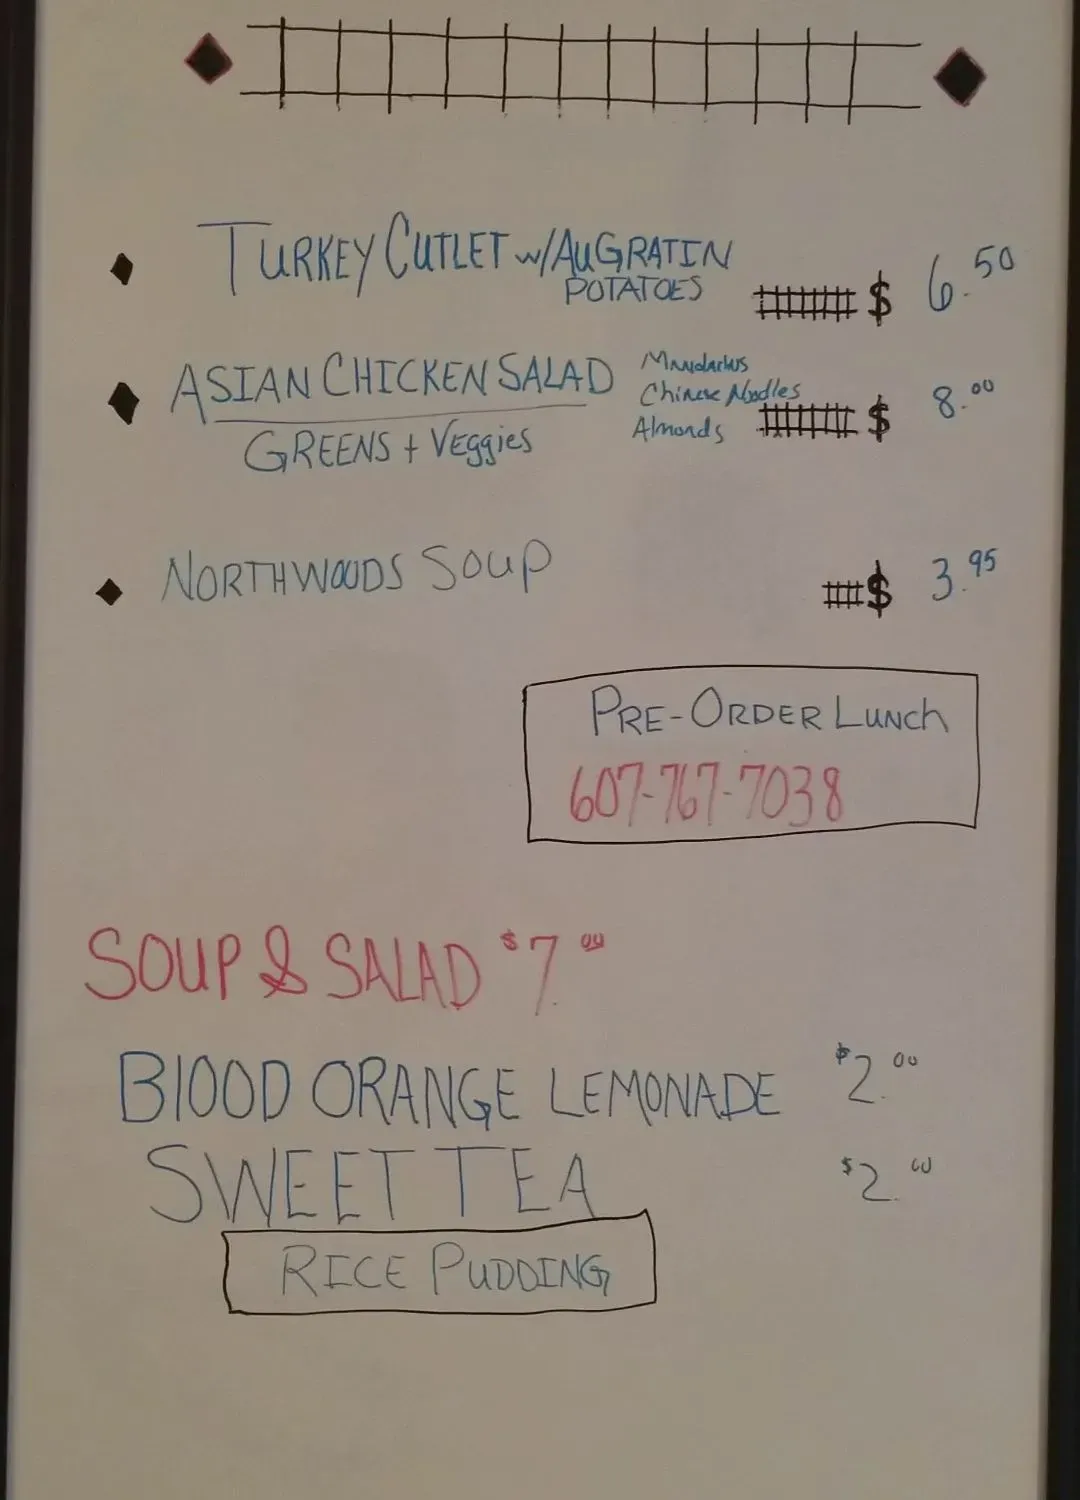 TURKEY CUTLET w/AUGRATIN
POTATOES $ 6.50
ASIAN CHICKEN SALAD
GREENS + Veggies
Mandarins
Chinese Noodles
Almonds $ 8.00
NORTHWOODS SOUP $ 3.95
PRE-ORDER LUNCH
607-767-7038
SOUP & SALAD $7.00
BLOOD ORANGE LEMONADE $2.00
SWEET TEA $2.00
RICE PUDDING